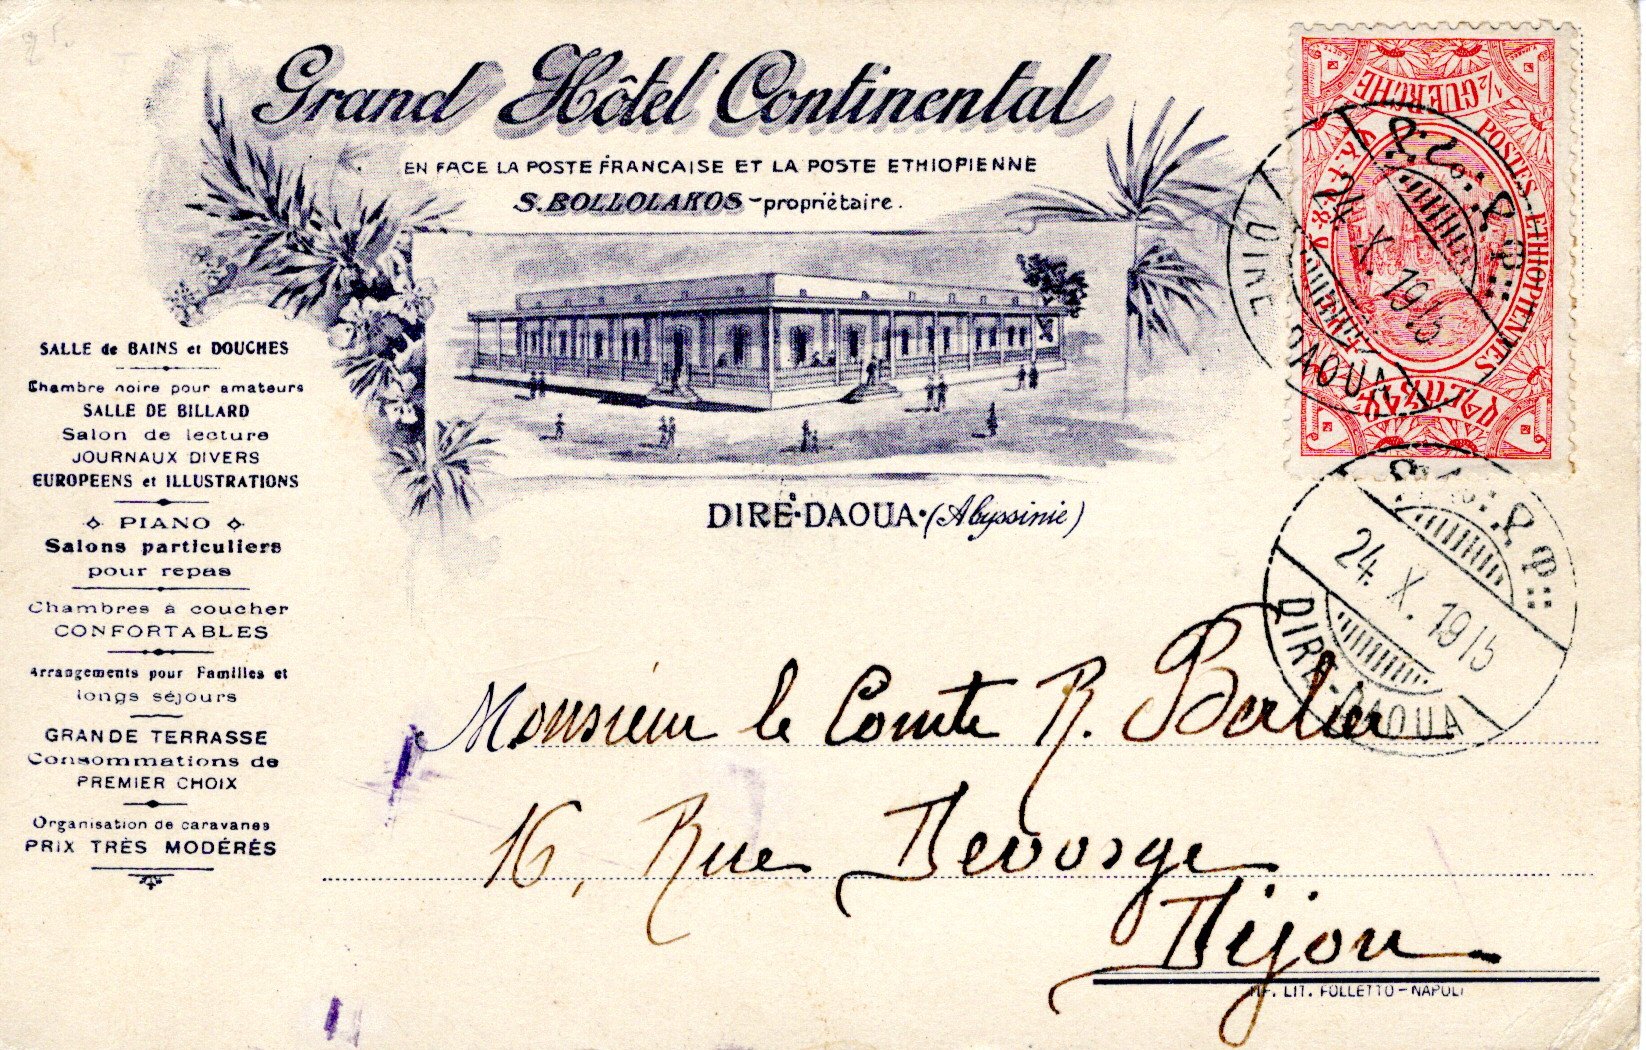 Grand Hôtel Continental
EN FACE LA POSTE FRANCAISE ET LA POSTE ETHIOPIENNE
S. BOLLOLAKOS - propriétaire.
SALLE de BAINS et DOUCHES
Chambre noire pour amateurs
SALLE DE BILLARD
Salon de lecture
JOURNAUX DIVERS
EUROPEENS et ILLUSTRATIONS
PIANO
Salons particuliers
pour repas
Chambres à coucher
CONFORTABLES
Arrangements pour Familles et
longs séjours
GRANDE TERRASSE
Consommations de
PREMIER CHOIX
Organisation de caravanes
PRIX TRÈS MODÉRÉS
DIRÈ·DAOUA·(Abyssinie)
1/2 GUERCHE
POSTES ETHIOPIENNES
X. 1915
DIRE DAOUA
24. X. 1915
DIRE-DAOUA
Monsieur le Comte R.
16, Rue Devosge
Dijon
LIT. FOLLETTO - NAPOLI